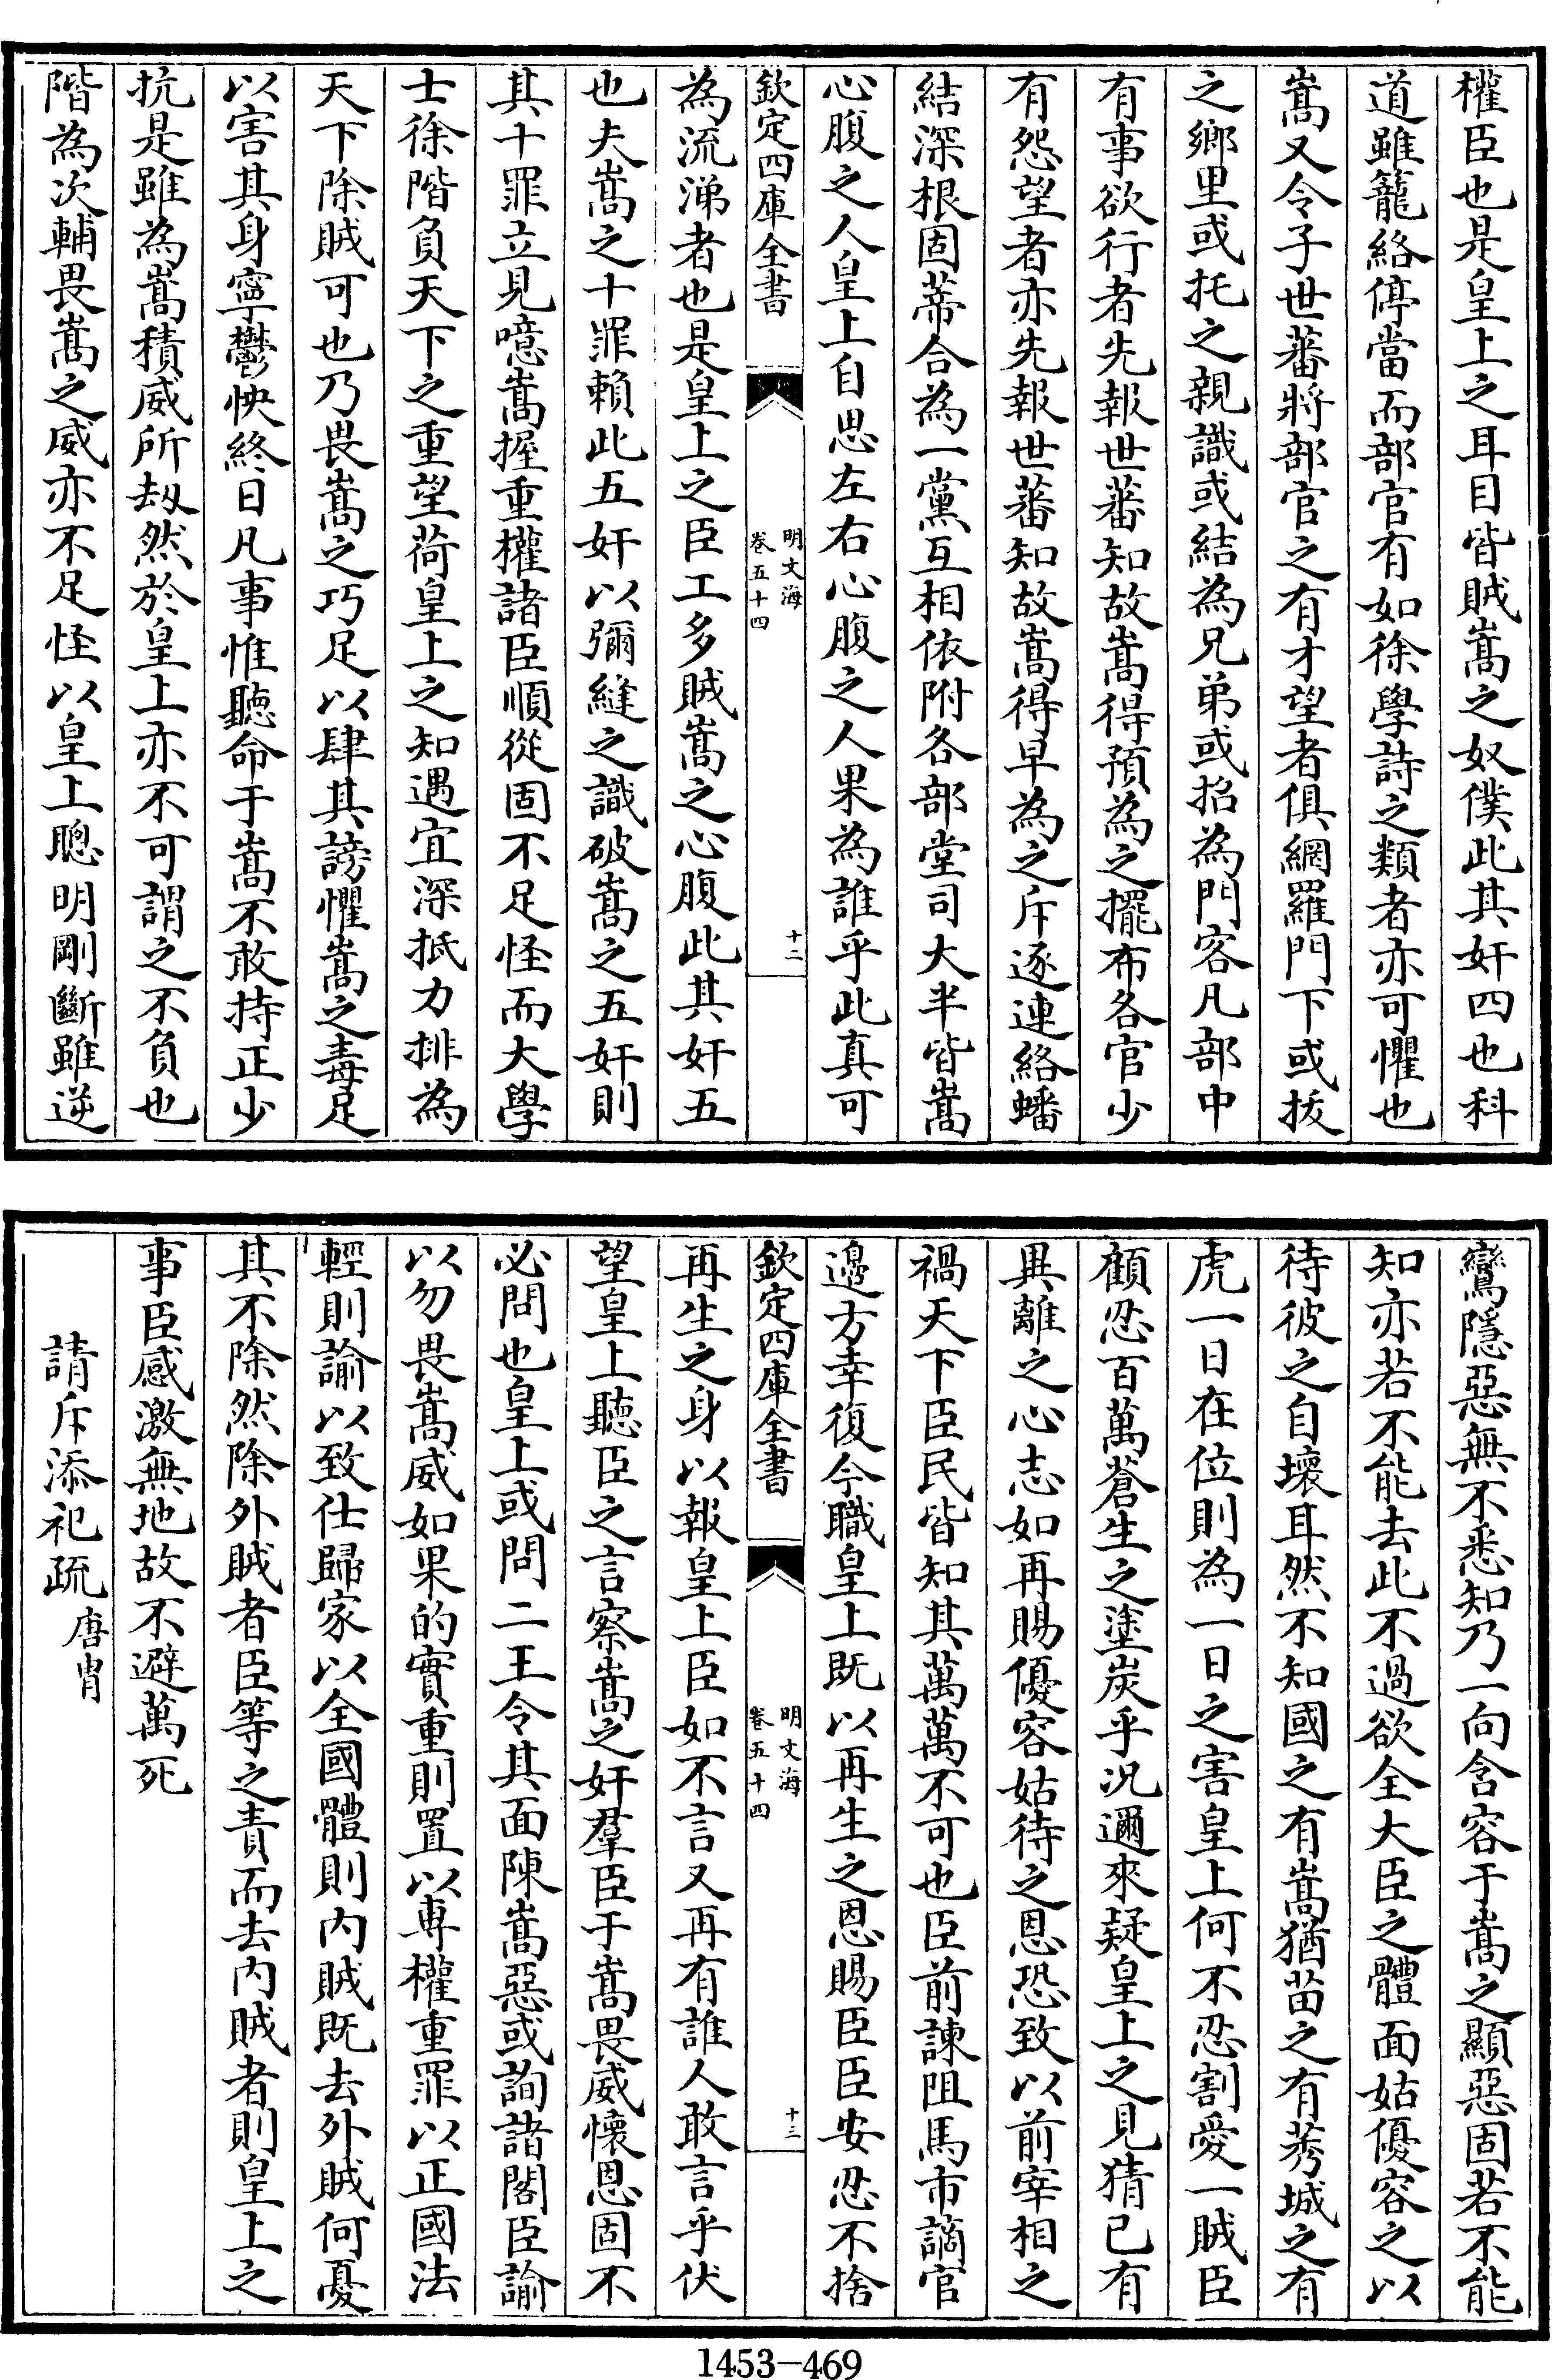 權臣也是皇上之耳目皆賊嵩之奴僕此其奸四也科
道雖籠絡停當而部官有如徐學詩之類者亦可懼也
嵩又令子世蕃將部官之有才望者俱網羅門下或拔
之鄉里或托之親識或結為兄弟或招為門客凡部中
有事欲行者先報世蕃知故嵩得預為之擺布各官少
有怨望者亦先報世蕃知故嵩得早為之斥逐連絡蟠
結深根固蒂合為一黨互相依附各部堂司大半皆嵩
心腹之人皇上自思左右心腹之人果為誰乎此真可
欽定四庫全書
明文海
卷五十四
十二
為流涕者也是皇上之臣工多賊嵩之心腹此其奸五
也夫嵩之十罪賴此五奸以彌縫之識破嵩之五奸則
其十罪立見噫嵩握重權諸臣順從固不足怪而大學
士徐階負天下之重望荷皇上之知遇宜深抵力排為
天下除賊可也乃畏嵩之巧足以肆其謗懼嵩之毒足
以害其身寧鬱怏終日凡事惟聽命于嵩不敢持正少
抗是雖為嵩積威所刼然於皇上亦不可謂之不負也
階為次輔畏嵩之威亦不足怪以皇上聰明剛斷雖逆
鸞隱惡無不悉知乃一向含容于嵩之顯惡固若不能
知亦若不能去此不過欲全大臣之體面姑優容之以
待彼之自壞耳然不知國之有嵩猶苗之有莠城之有
虎一日在位則為一日之害皇上何不忍割愛一賊臣
顧忍百萬蒼生之塗炭乎况邇來疑皇上之見猜已有
異離之心志如再賜優容姑待之恩恐致以前宰相之
禍天下臣民皆知其萬萬不可也臣前諫阻馬市謫官
邊方幸復今職皇上既以再生之恩賜臣臣安忍不捨
欽定四庫全書
明文海
卷五十四
十三
再生之身以報皇上臣如不言又再有誰人敢言乎伏
望皇上聽臣之言察嵩之奸羣臣于嵩畏威懷恩固不
必問也皇上或問二王令其面陳嵩惡或詢諸閣臣諭
以勿畏嵩威如果的實重則置以專權重罪以正國法
輕則諭以致仕歸家以全國體則内賊既去外賊何憂
其不除然除外賊者臣等之責而去内賊者則皇上之
事臣感激無地故不避萬死
請斥添祀疏 唐胄
1453—469